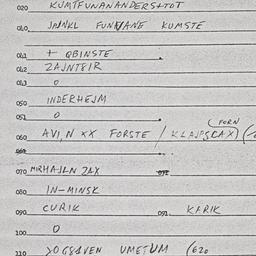 020 KUMTFUNANANDERSHTOT
040 JANKL FUNMANE KUMSTE
041 + QBINSTE
042 ZAJNTEIR
043 0
050 INDERHEJM
051 0
060 AVI,N XX FORSTE / KLAPSCAX)
FORN
070 MIRHAJLN ZAX
080 IN-MINSK
090 CURIK 091 KARIK
100 0
110 UMETUM (620